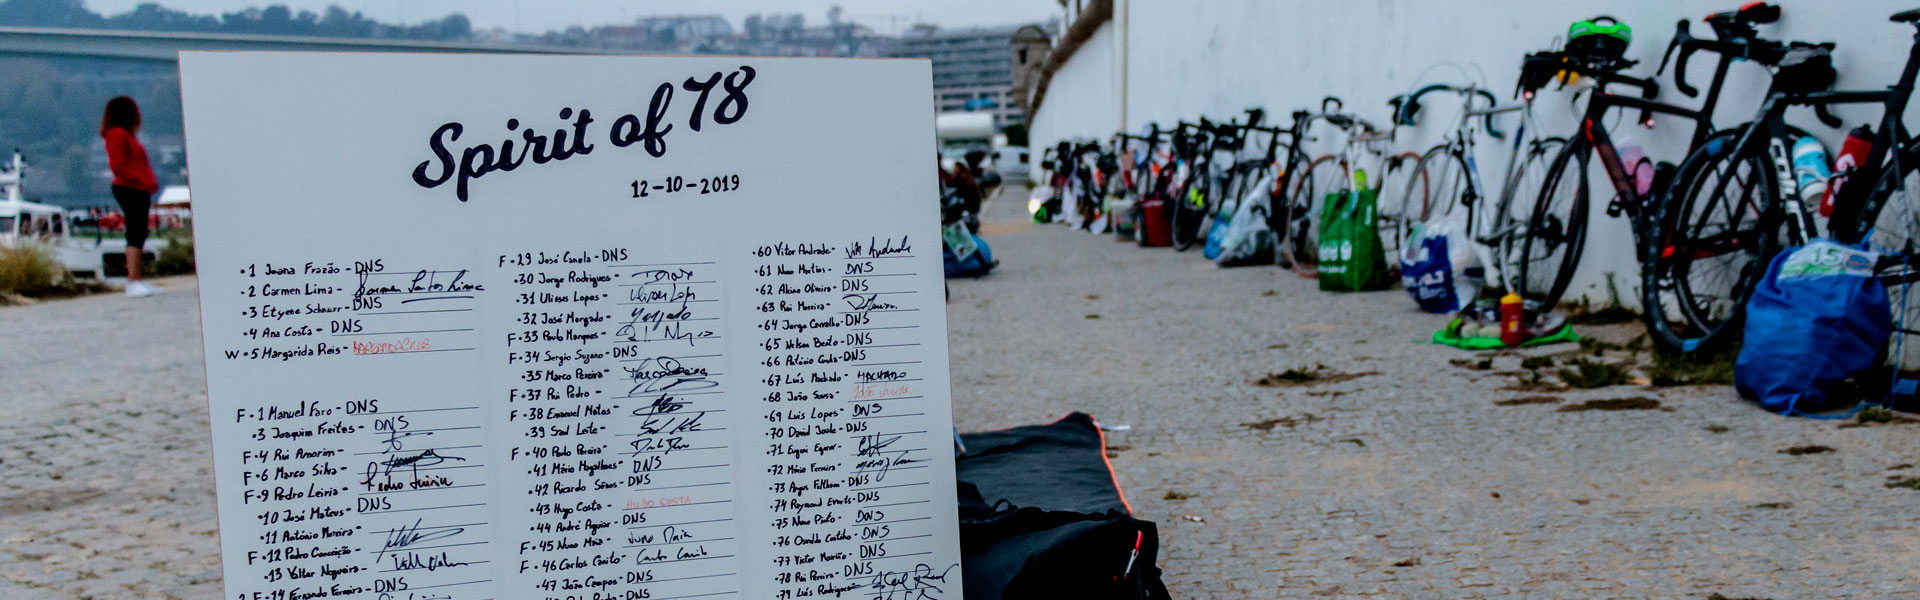 Spirit of 78
12-10-2019
•1 Joana Frazão - DNS
•2 Carmen Lima -
•3 Etyene Schnurr - DNS
•4 Ana Costa - DNS
W •5 Margarida Reis -
F •1 Manuel Faro - DNS
•3 Joaquim Freitas - DNS
F •4 Rui Amorim -
F •6 Marco Silva -
F •9 Pedro Leiria - Pedro Leiria
•10 José Mateus - DNS
•11 António Moreira -
F •12 Pedro Conceição -
•13 Valter Nogueira -
F •14 Fernando Ferreira - DNS
F •29 José Canela - DNS
•30 Jorge Rodrigues -
•31 Ulisses Lopes - Ulisses Lopes
•32 José Morgado - Morgado
F •33 Paulo Marques -
F •34 Sergio Suzano - DNS
•35 Marco Pereira -
F •37 Rui Pedro -
F •38 Emanuel Matos -
•39 Saul Leite -
F •40 Paulo Pereira -
•41 Mário Magalhães - DNS
•42 Ricardo - DNS
•43 Hugo Costa - HUGO COSTA
•44 André Aguiar - DNS
F •45 Nuno Maia - Nuno Maia
F •46 Carlos Canito - Carlos Canito
•47 João Campos - DNS
DNS
•60 Vitor Andrade -
•61 Nuno Martins - DNS
•62 Albino Oliveira - DNS
•63 Rui Moreira -
•64 Jorge Carvalho - DNS
•65 Nelson - DNS
•66 António - DNS
•67 Luís Machado - MACHADO
•68 João Sousa -
•69 Luis Lopes - DNS
•70 David - DNS
•71
•72 Mário Ferreira -
•73 Angus - DNS
•74 Raymond - DNS
•75 Nuno Pinto - DNS
•76 Osvaldo - DNS
•77 Victor - DNS
•78 Rui Pereira - DNS
•79 Luís Rodrigues
15